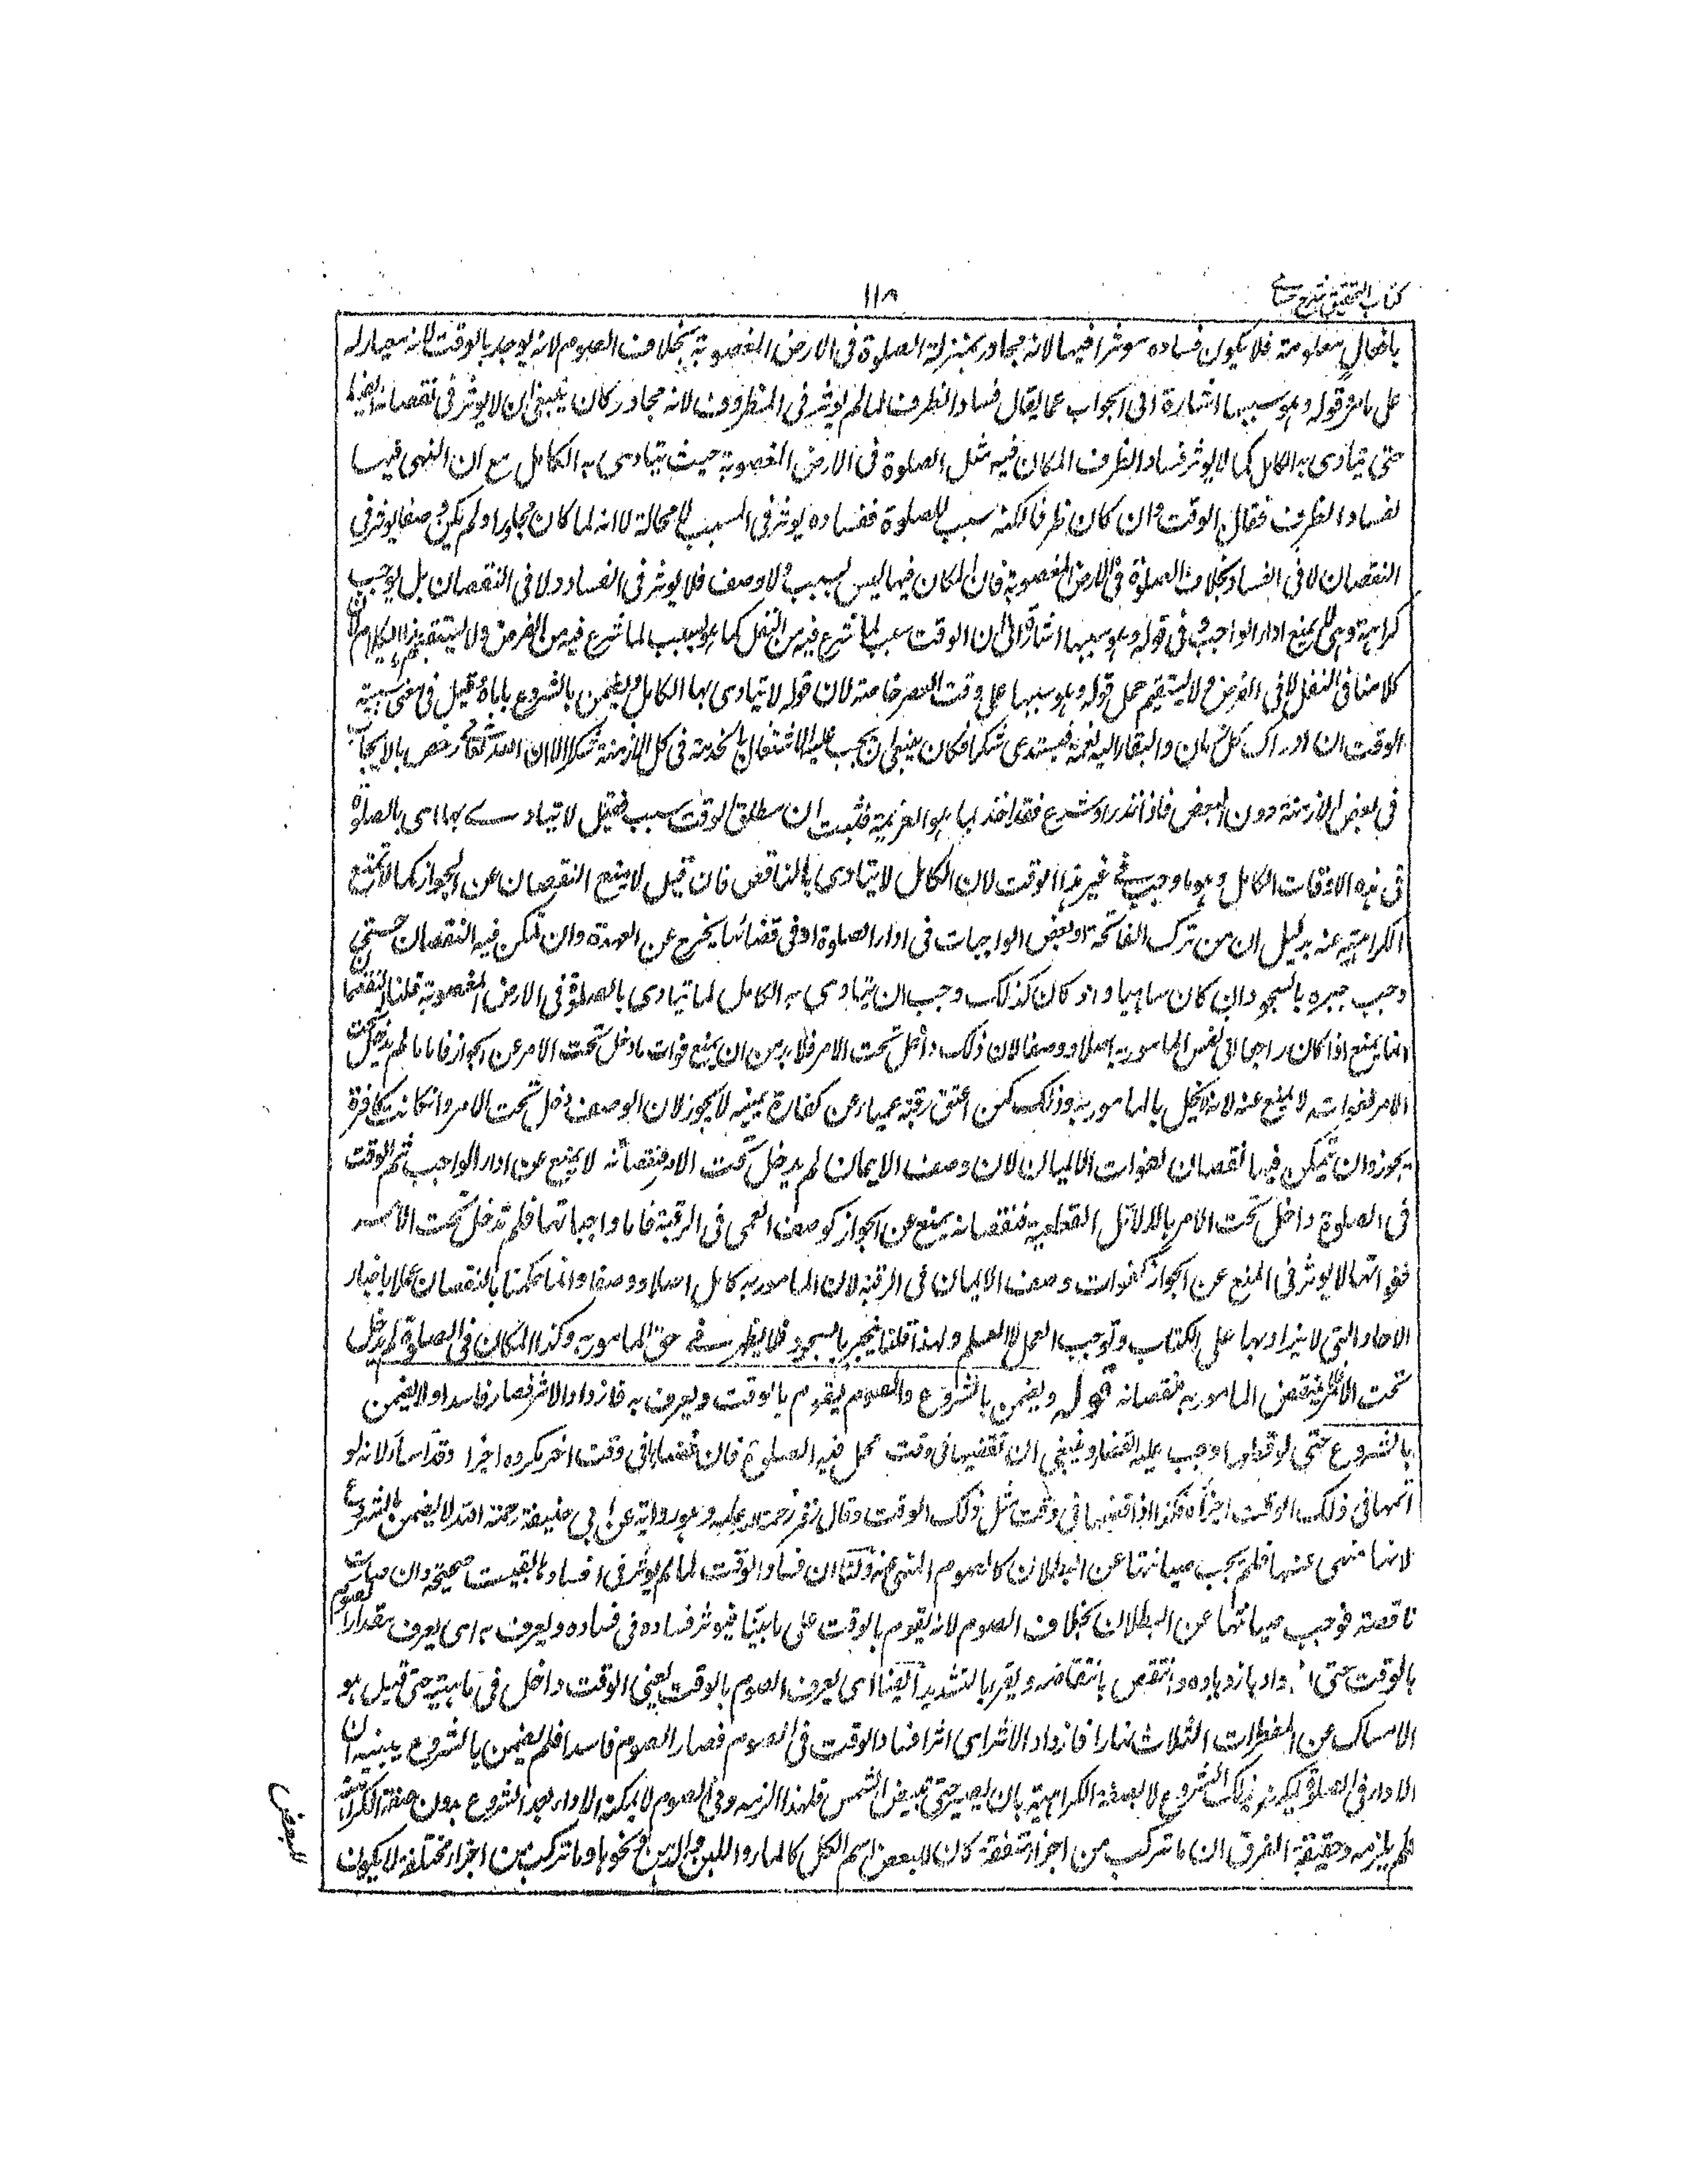 كتاب التحقيق شرح حسامى
١١٨
بافعال معلومة فلا يكون فساده موثرا فيها لانه مجاور بمنزلة الصلوة فى الارض المغصوبة بخلاف الصوم لانه يوجد بالوقت لانه معيار له
على ما مر قوله وهو سببها اشارة الى الجواب عما يقال فساد الظرف لما لم يوثر فى المظروف لانه مجاور كان ينبغى ان لا يوثر فى نقصانه ايضا
حتى يتادى به الكامل كما لا يوثر فساد الظرف المكان فيه مثل الصلوة فى الارض المغصوبة حيث يتادى به الكامل مع ان النهى فيها
لفساد الظرف فقال الوقت وان كان ظرفا لكنه سبب للصلوة ففساده يوثر فى المسبب لا محالة لا انه لما كان مجاورا ولم يكن وصفا يوثر فى
النقصان لا فى الفساد بخلاف الصلوة فى الارض المغصوبة فان المكان فيها ليس بسبب ولا وصف فلا يوثر فى الفساد ولا فى النقصان بل يوجب
كراهة وهى لا يمنع اداء الواجب و فى قوله وهو سببها اشارة الى ان الوقت سبب لما شرع فيه من النفل كما هو سبب لما شرع فيه من الفرض ولا يستقيم هذا الكلام لان
كلامنا فى النفل لا فى الفرض ولا يستقيم حمل قوله وهو سببها على وقت العصر خاصة لان قوله لا يتادى بها الكامل ويضمن بالشروع ياباه وقيل فى معنى سببية
الوقت ان ادراك كل زمان والبقاء اليه نعمة فيستدعى شكرا فكان ينبغى ان يجب عليه الاشتغال بالخدمة فى كل الازمنة شكرا الا ان الله تعالى رخص بالايجاب
فى بعض الازمنة دون البعض فاذا نذر او شرع فقد اخذ بما هو العزيمة فثبت ان مطلق الوقت سبب فقيل لا يتادى بها اى بالصلوة
فى هذه الاوقات الكامل وهو ما وجب فى غير هذا الوقت لان الكامل لا يتادى بالناقص فان قيل لا يمنع النقصان عن الجواز كما لا تمنع
الكراهية عنه بدليل ان من ترك الفاتحة او بعض الواجبات فى اداء الصلوة او فى قضائها يخرج عن العهدة وان تمكن فيه النقصان حتى
وجب جبره بالسجود وان كان ساهيا واذ كان كذلك وجب ان يتادى به الكامل كما يتادى بالصلوة فى الارض المغصوبة قلنا النقصان
انما يمنع اذا كان راجعا الى نفس المامور به اصلا او وصفا لان ذلك داخل تحت الامر فلا بد من ان يمنع فوات ما دخل تحت الامر عن الجواز فاما ما لم يدخل تحت
الامر ففواته لا يمنع عنه لانه لا يخل بالمامور به وذلك كمن اعتق رقبة عمياء عن كفارة يمينه لا يجوز لان الوصف دخل تحت الامر وان كانت كافرة
يجوز وان تمكن فيها نقصان لفوات الايمان لان وصف الايمان لم يدخل تحت الامر فنقصانه لا يمنع عن اداء الواجب ثم الوقت
فى الصلوة داخل تحت الامر بالدلائل القطعية فنقصانه يمنع عن الجواز كوصف العمى فى الرقبة فاما واجباتها فلم تدخل تحت الامر
ففواتها لا يوثر فى المنع عن الجواز كفوات وصف الايمان فى الرقبة لان المامور به كامل اصلا ووصفا وانما حكمنا بالنقصان عملا باخبار
الاحاد التى لا يزاد بها على الكتاب وتوجب العمل لا العلم ولهذا قلنا ينجبر بالسجود فلا يظهر فى حق المامور به وكذا المكان فى الصلوة لم يدخل
تحت الامر فلم ينتقص المامور به بنقصانه قوله ويضمن بالشروع والصوم يقوم بالوقت ويعرف به فازداد الاثر فصار فاسدا ولا يضمن
بالشروع حتى لو قطعها وجب عليه القضاء وينبغى ان تقضيها فى وقت تحل فيه الصلوة فان قضاها فى وقت اخر مكروه اجزاه وقد اساء لانه لو
اتمها فى ذلك الوقت اجزاه فكذا اذا قضيها فى وقت مثل ذلك الوقت وقال زفر رحمة الله عليه وهو رواية عن ابى حنيفة رحمة الله لا يضمن بالشروع
لانها منهى عنها فلم يجب صيانتها عن البطلان كالصوم المنهى عنه ولنا ان فساد الوقت لما لم يوثر فى افسادها بقيت صحيحة وان صارت
ناقصة فوجب صيانتها عن البطلان بخلاف الصوم لانه يقوم بالوقت على ما بينا فيوثر فساده فى فساده ويعرف به اى يعرف مقدار الصوم
بالوقت حتى ازداد بازدياده وانتقص بانتقاصه ويعرف بالتشديد ايضا اى يعرف الصوم بالوقت يعنى الوقت داخل فى ماهيته حتى قيل هو
الامساك عن المفطرات الثلاث نهارا فازداد الاثر اى اثر فساد الوقت فى الصوم فصار الصوم فاسدا فلم يضمن بالشروع يبينه ان
الاداء فى الصلوة يمكنه بذلك الشروع لا بصفة الكراهية بان يصبر حتى تبيض الشمس فلهذا الزمه وفى الصوم لا يمكنه الاداء بعد الشروع بدون صفة الكراهية
فلم يلزمه وحقيقة الفرق ان ما تركب من اجزاء متفقة كان للبعض اسم الكل كالماء واللبن والدهن ونحوها وما تركب من اجزاء مختلفة لا يكون
للبعض